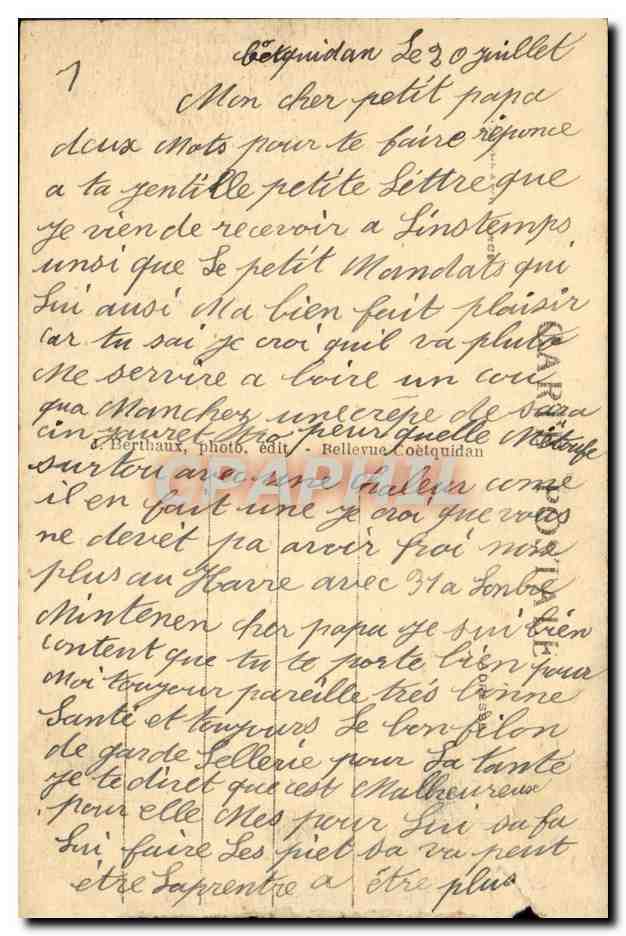 1
Coëtquidan Le 20 juillet
Mon cher petit papa
deux Mots pour te faire réponce
a ta jentille petite Léttre que
je vien de recevoir a Linstemps
unsi que Le petit Mandats qui
Lui ausi Ma bien fait plaisir
car tu sai je croi quil va pluto
Me servire a boire un cou
qua Manchez une crêpe de
peur quelle Métoufe
J. Berthaux, photo. édit. - Bellevue Coëtquidan
surtou avec une chaleur come
il en fait une je croi que vous
ne devét pa avoir froi non
plus au Havre avec 31 a Lonbre
Mintenen cher papa je sui bien
content que tu te porte bien pour
Moi toujour pareille trés bonne
Santé et toujours Le bon filon
de garde Sellerie pour La tante
je te diret que cest Malheureux
pour elle Mes pour Lui sa fa
Lui faire Les piet sa va peut
être Laprentre a être plus
CARTE POSTALE
CPAPHIL